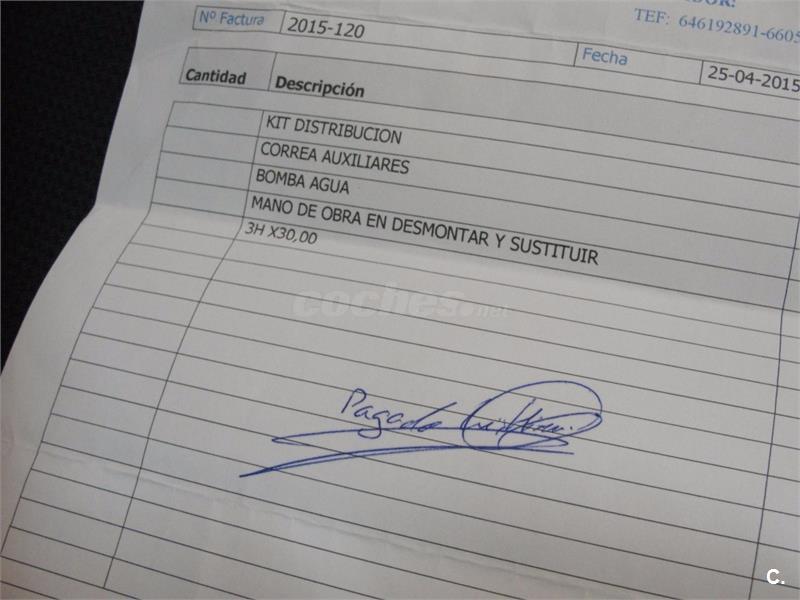 TEF: 646192891-6605
Nº Factura 2015-120 Fecha 25-04-2015
Cantidad Descripción
KIT DISTRIBUCION
CORREA AUXILIARES
BOMBA AGUA
MANO DE OBRA EN DESMONTAR Y SUSTITUIR
3H X30,00
coches.net
Pagado
C.